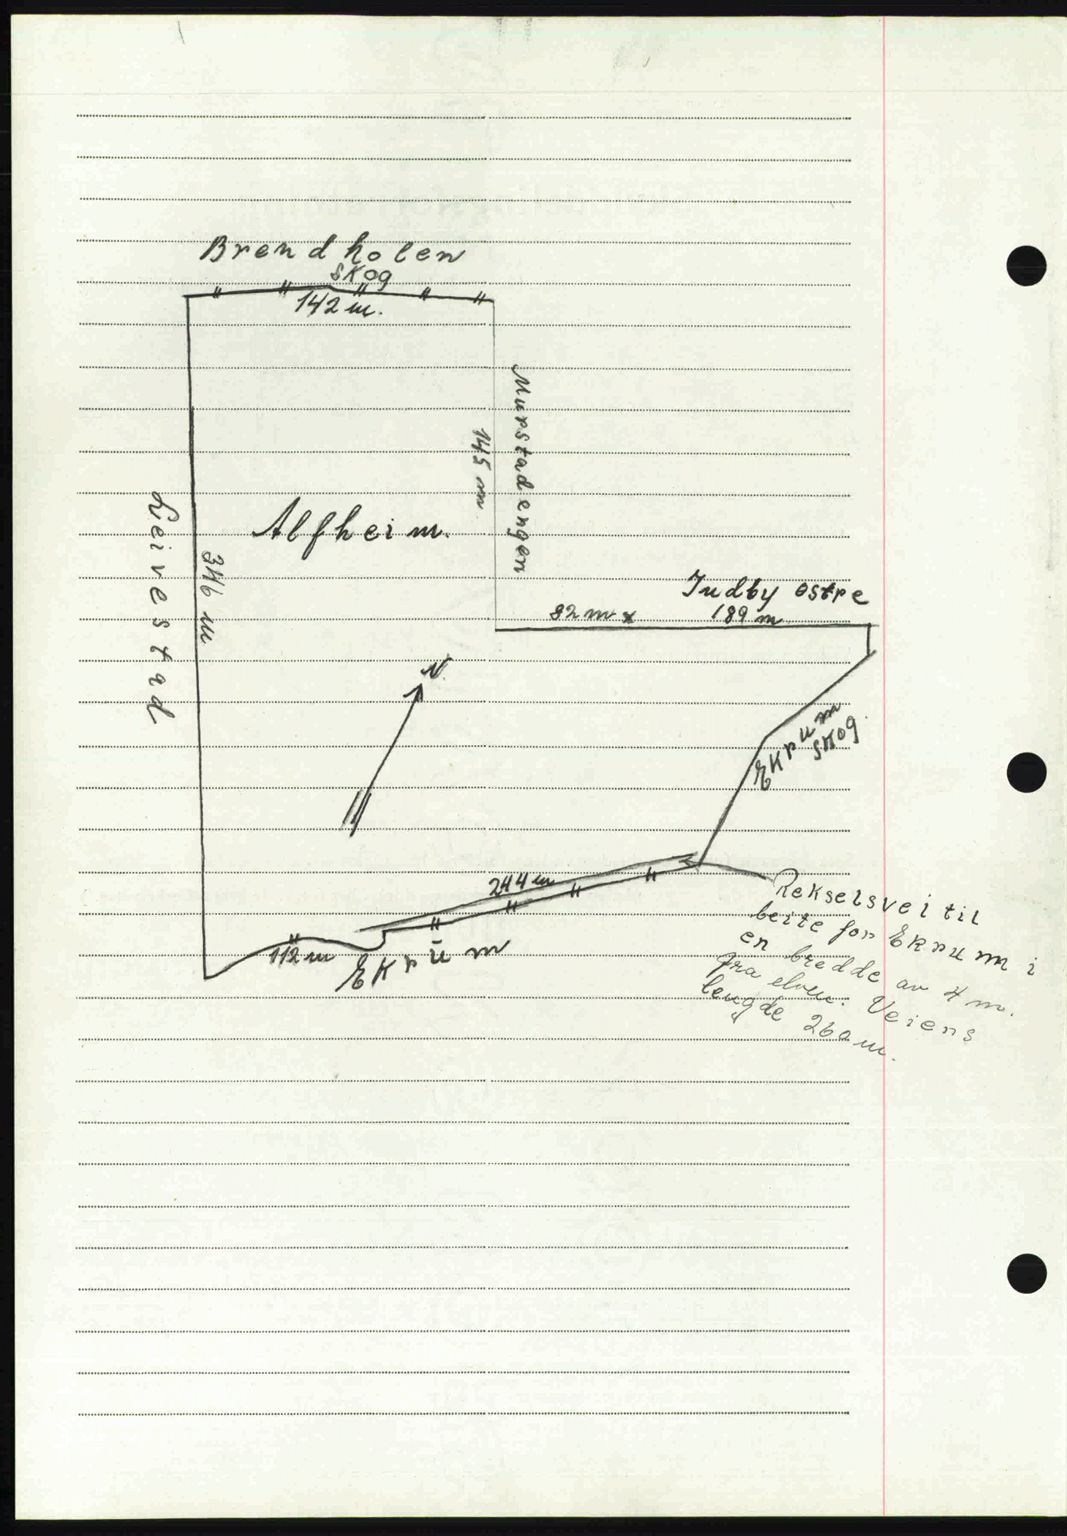 Brendholen
skog
142 m.
Murstadengen
145 m
Alfheim.
Leivestad
346 m
Indby østre
82 m x 189 m
N.
Ekrum
skog.
244 m
112 m
Ekrum
Rekselsvei til
beite for Ekrum i
en bredde av 4 m.
fra elven. Veiens
lengde 260 m.